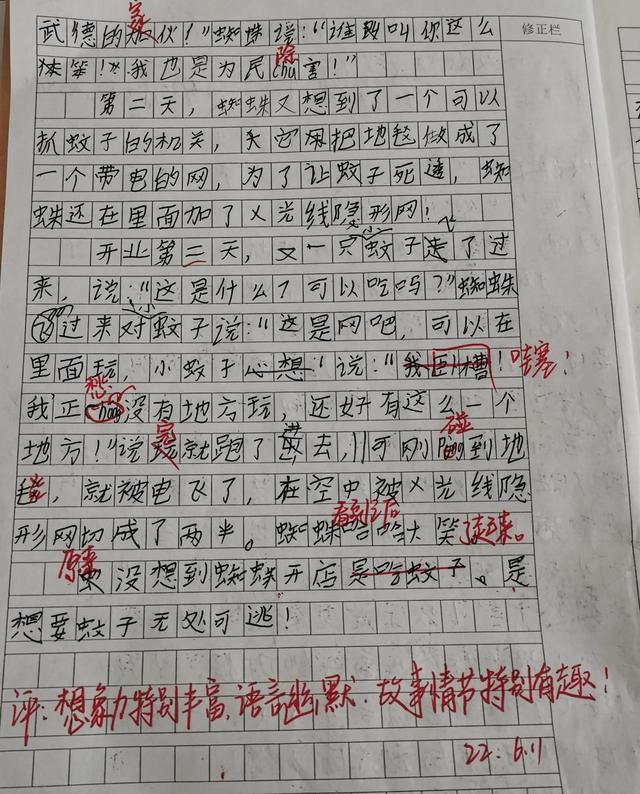 修正栏
家
武德的伙!"蜘蛛说:"谁叫你这么
除
体笨!"我也是为民chu害!"
第二天,蜘蛛又想到了一个可以
抓蚊子的机关,把地毯做成了
一个带电的网,为了让蚊子死透,蜘
蛛还在里面加了X光线隐形网!
飞
开业第二天,又一只蚊子走了过
来,说:"这是什么?可以吃吗?"蜘蛛
小
飞过来对蚊子说:"这是网吧,可以在
里面玩,小蚊子心想"说:"我槽!哇塞!
愁
我正没有地方玩,还好有这么一个
完 进 碰
地方!"说就跑了去,可刚到地
毯,就被电飞了,在空中被X光线隐
看到后
形网切成了两半。蜘蛛哈哈大笑了起来。
原来
没想到蜘蛛开店是吃蚊子。是
想要蚊子无处可逃!
评:想象力特别丰富,语言幽默.故事情节特别有趣!
22.6.11